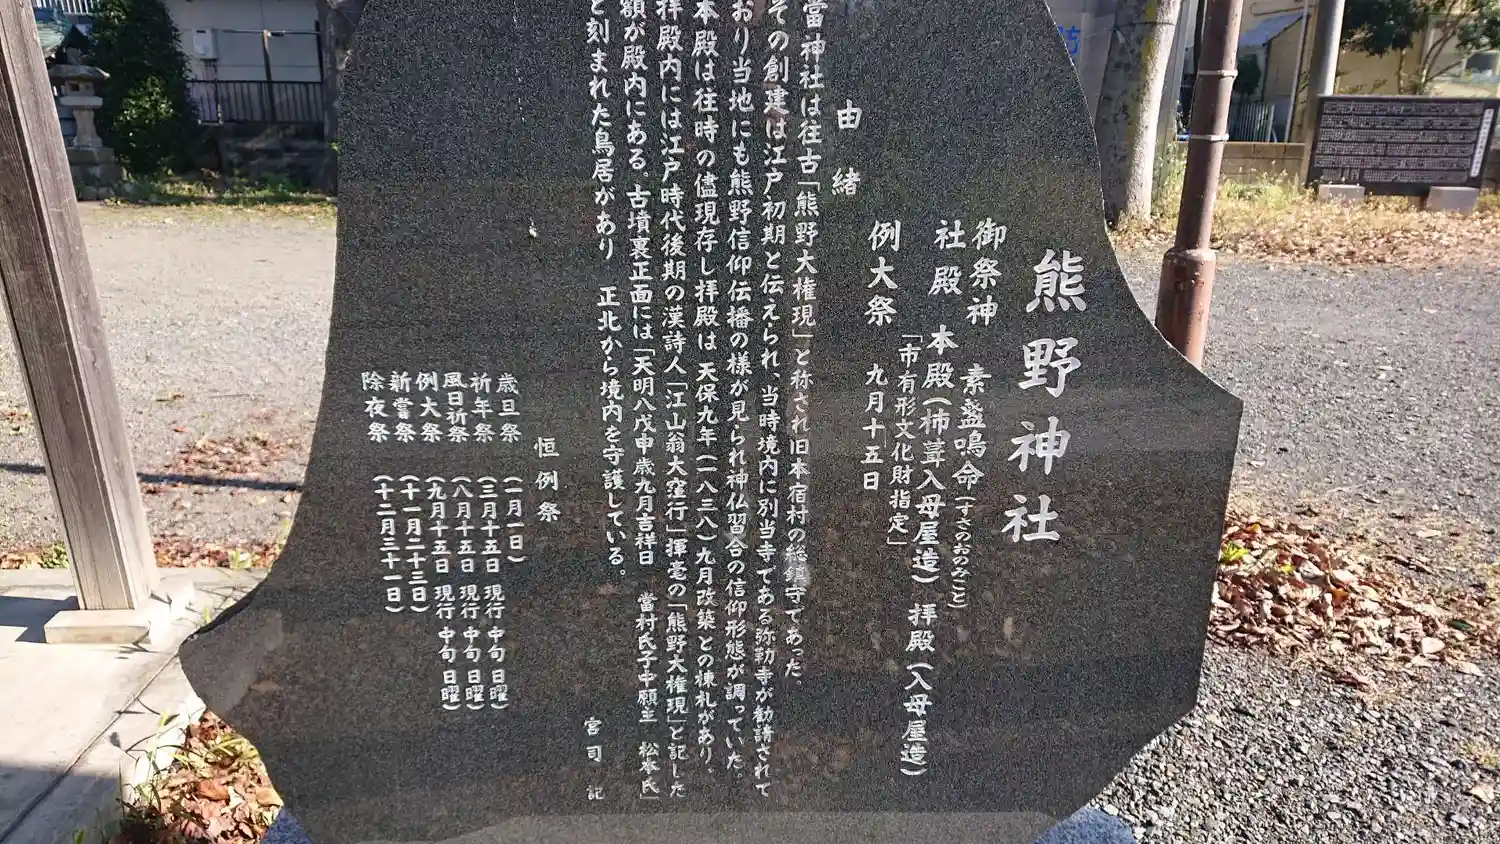 熊野神社
御祭神　素盞鳴命（すさのおのみこと）
社殿　本殿（柿葺入母屋造）　拝殿（入母屋造）
「市有形文化財指定」
例大祭　九月十五日
由緒
當神社は往古「熊野大権現」と称され旧本宿村の総鎮守であった。
その創建は江戸初期と伝えられ、当時境内に別当寺である弥勒寺が勧請されて
おり当地にも熊野信仰伝播の様が見られ神仏習合の信仰形態が調っていた。
本殿は往時の儘現存し拝殿は 天保九年（一八三八）九月改築との棟札があり。
拝殿内には江戸時代後期の漢詩人「江山翁大窪行」揮毫の「熊野大権現」と記した
額が殿内にある。古墳裏正面には「天明八戊申歳九月吉祥日　當村氏子中願主　松本氏」
と刻まれた鳥居があり　正北から境内を守護している。
宮司　記
恒例祭
歳旦祭　（一月一日）
祈年祭　（三月十五日 現行 中旬 日曜）
風日祈祭　（八月十五日 現行 中旬 日曜）
例大祭　（九月十五日 現行 中旬 日曜）
新嘗祭　（十一月二十三日）
除夜祭　（十二月三十一日）